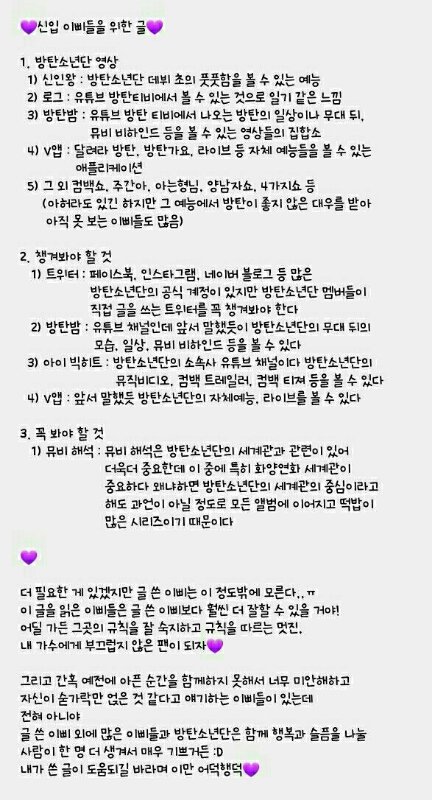 💜신입 이삐들을 위한 글💜
1. 방탄소년단 영상
1) 신인왕 : 방탄소년단 데뷔 초의 풋풋함을 볼 수 있는 예능
2) 로그 : 유튜브 방탄티비에서 볼 수 있는 것으로 일기 같은 느낌
3) 방탄밤 : 유튜브 방탄 티비에서 나오는 방탄의 일상이나 무대 뒤,
뮤비 비하인드 등을 볼 수 있는 영상들의 집합소
4) V앱 : 달려라 방탄, 방탄가요, 라이브 등 자체 예능들을 볼 수 있는
애플리케이션
5) 그 외 컴백쇼, 주간아, 아는형님, 양남자쇼, 4가지쇼 등
(아혀라도 있긴 하지만 그 예능에서 방탄이 좋지 않은 대우를 받아
아직 못 보는 이삐들도 많음)
2. 챙겨봐야 할 것
1) 트위터 : 페이스북, 인스타그램, 네이버 블로그 등 많은
방탄소년단의 공식 계정이 있지만 방탄소년단 멤버들이
직접 글을 쓰는 트위터를 꼭 챙겨봐야 한다
2) 방탄밤 : 유튜브 채널인데 앞서 말했듯이 방탄소년단의 무대 뒤의
모습, 일상, 뮤비 비하인드 등을 볼 수 있다
3) 아이 빅히트 : 방탄소년단의 소속사 유튜브 채널이다 방탄소년단의
뮤직비디오, 컴백 트레일러, 컴백 티져 등을 볼 수 있다
4) V앱 : 앞서 말했듯 방탄소년단의 자체예능, 라이브를 볼 수 있다
3. 꼭 봐야 할 것
1) 뮤비 해석 : 뮤비 해석은 방탄소년단의 세계관과 관련이 있어
더욱더 중요한데 이 중에 특히 화양연화 세계관이
중요하다 왜냐하면 방탄소년단의 세계관의 중심이라고
해도 과언이 아닐 정도로 모든 앨범에 이어지고 떡밥이
많은 시리즈이기 때문이다
💜
더 필요한 게 있겠지만 글 쓴 이삐는 이 정도밖에 모른다..ㅠ
이 글을 읽은 이삐들은 글 쓴 이삐보다 훨씬 더 잘할 수 있을 거야!
어딜 가든 그곳의 규칙을 잘 숙지하고 규칙을 따르는 멋진,
내 가수에게 부끄럽지 않은 팬이 되자💜
그리고 간혹 예전에 아픈 순간을 함께하지 못해서 너무 미안해하고
자신이 숟가락만 얹은 것 같다고 얘기하는 이삐들이 있는데
전혀 아니야
글 쓴 이삐 외에 많은 이삐들과 방탄소년단은 함께 행복과 슬픔을 나눌
사람이 한 명 더 생겨서 매우 기쁘거든 :D
내가 쓴 글이 도움되길 바라며 이만 어덕행덕💜